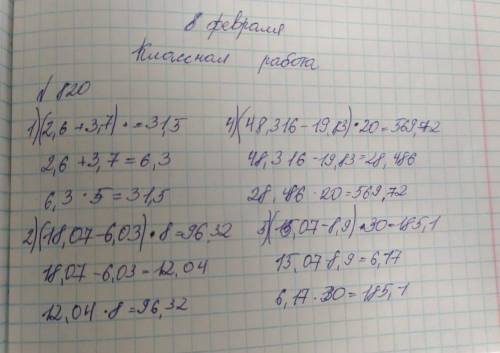 8 февраля
Классная работа
№ 820
1) (2,6 + 3,7) · = 31,5
2,6 + 3,7 = 6,3
6,3 · 5 = 31,5
2) (18,07 - 6,03) · 8 = 96,32
18,07 - 6,03 = 12,04
12,04 · 8 = 96,32
4) (48,316 - 19,83) · 20 = 569,72
48,316 - 19,83 = 28,486
28,486 · 20 = 569,72
3) (15,07 - 8,9) · 30 = 185,1
15,07 - 8,9 = 6,17
6,17 · 30 = 185,1